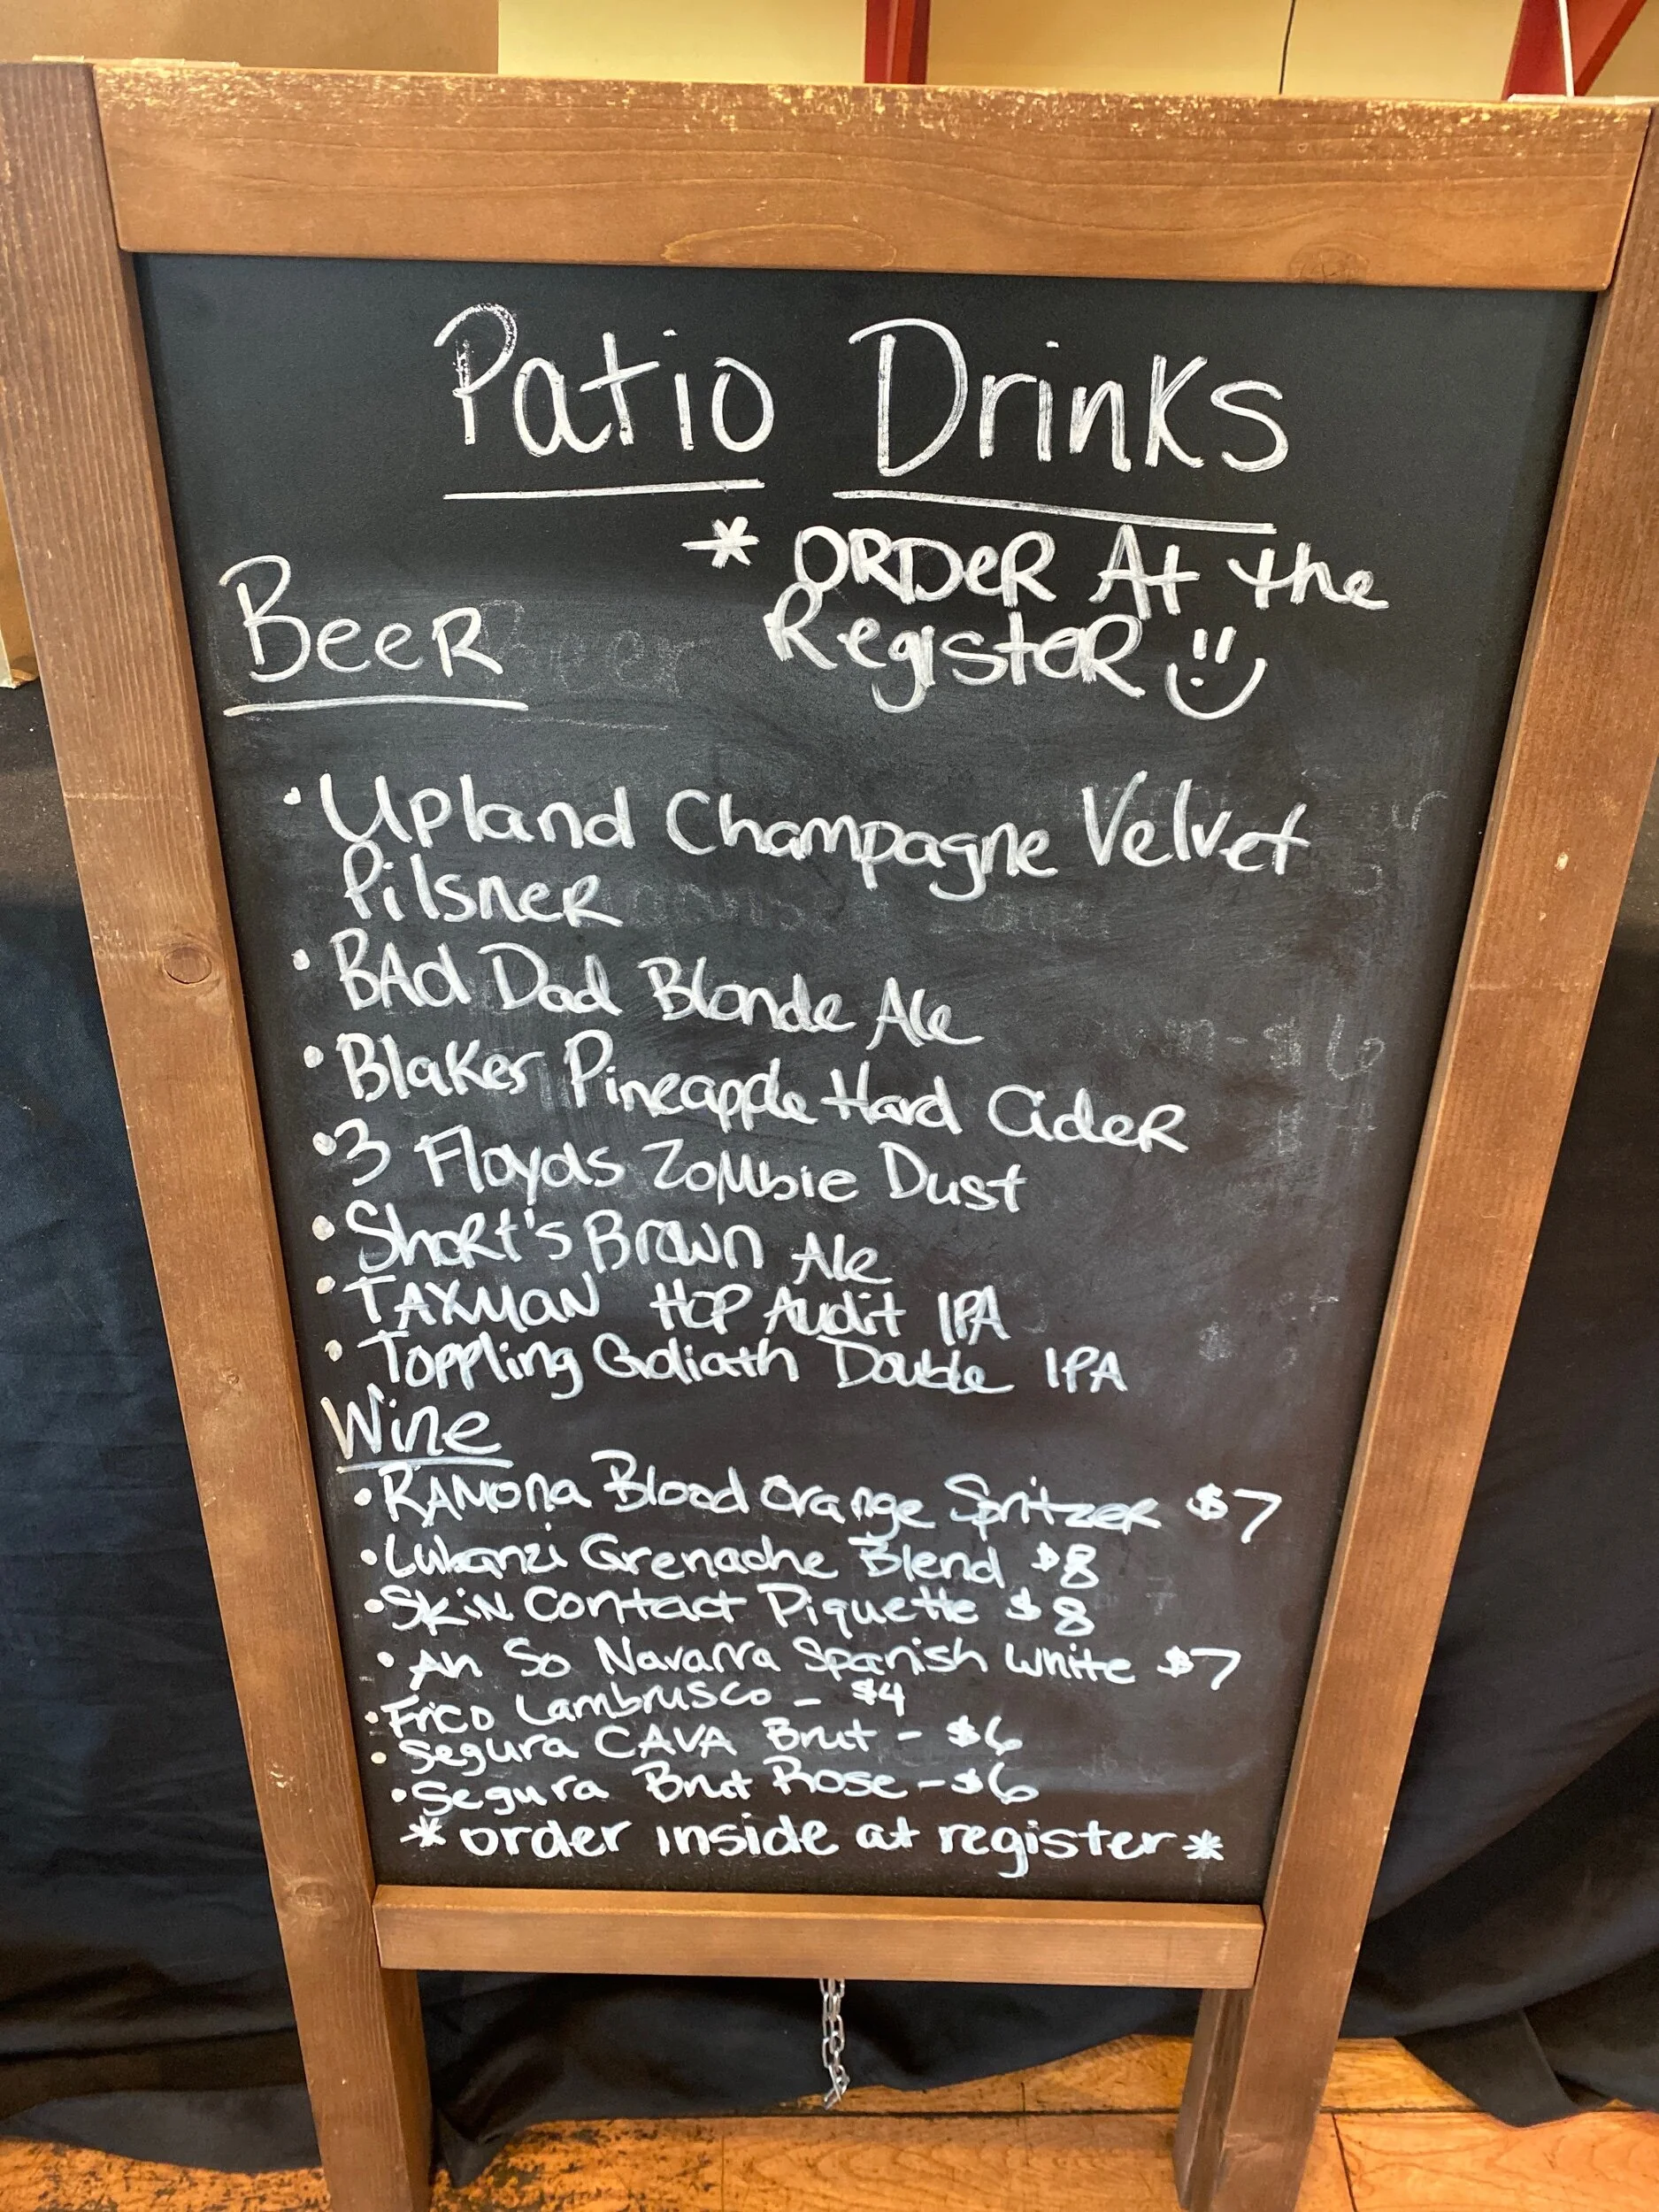 Patio Drinks
* ORDeR At the
RegisteR
BeeR
• Upland Champagne Velvet
PilsneR
• BAd Dad Blonde Ale
• Blakes Pineapple Hard CideR
• 3 Floyds ZoMbie Dust
• ShoRt's Brown Ale
• TAXMAN HOP Audit IPA
• Toppling Goliath Double IPA
Wine
• RAMONA Blood Orange SpritzeR $7
• Lubanzi Grenache Blend $8
• SkiN Contact Piquette $8
• An So Navarra Spanish white $7
• Frico Lambrusco - $4
• Segura CAVA Brut - $6
• Segura Brut Rose - $6
* order inside at register *